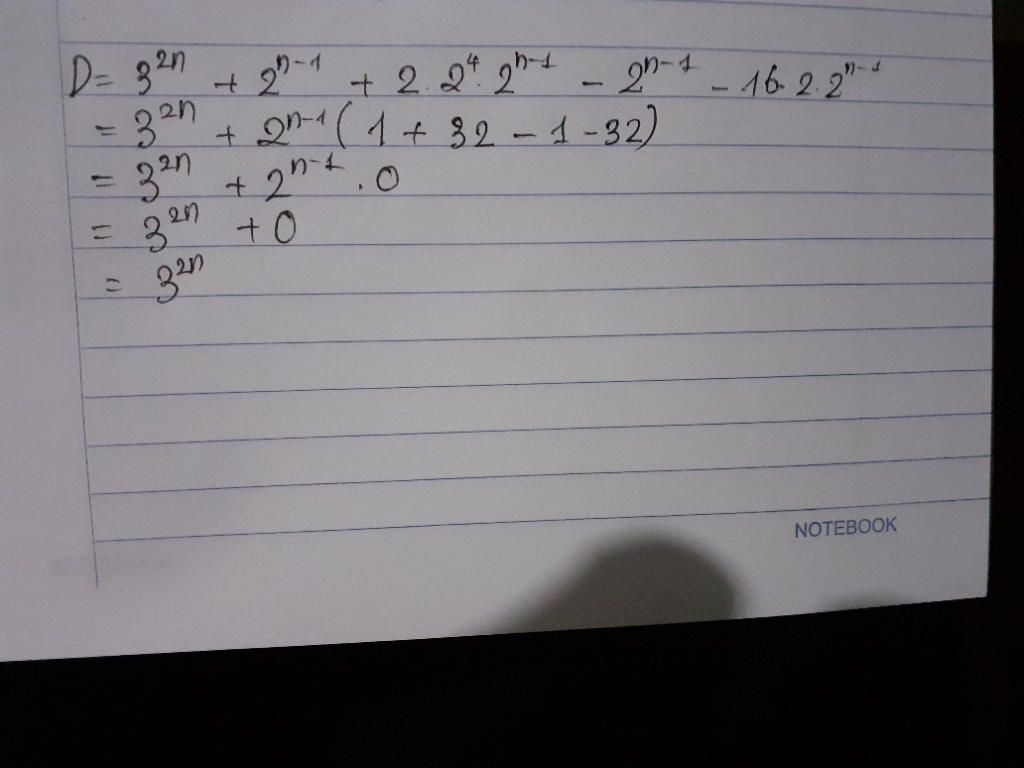 D = 3^{2n} + 2^{n-1} + 2.2^4.2^{n-1} - 2^{n-1} - 16.2.2^{n-1}
= 3^{2n} + 2^{n-1} ( 1 + 32 - 1 - 32)
= 3^{2n} + 2^{n-1} . 0
= 3^{2n} + 0
= 3^{2n}
NOTEBOOK